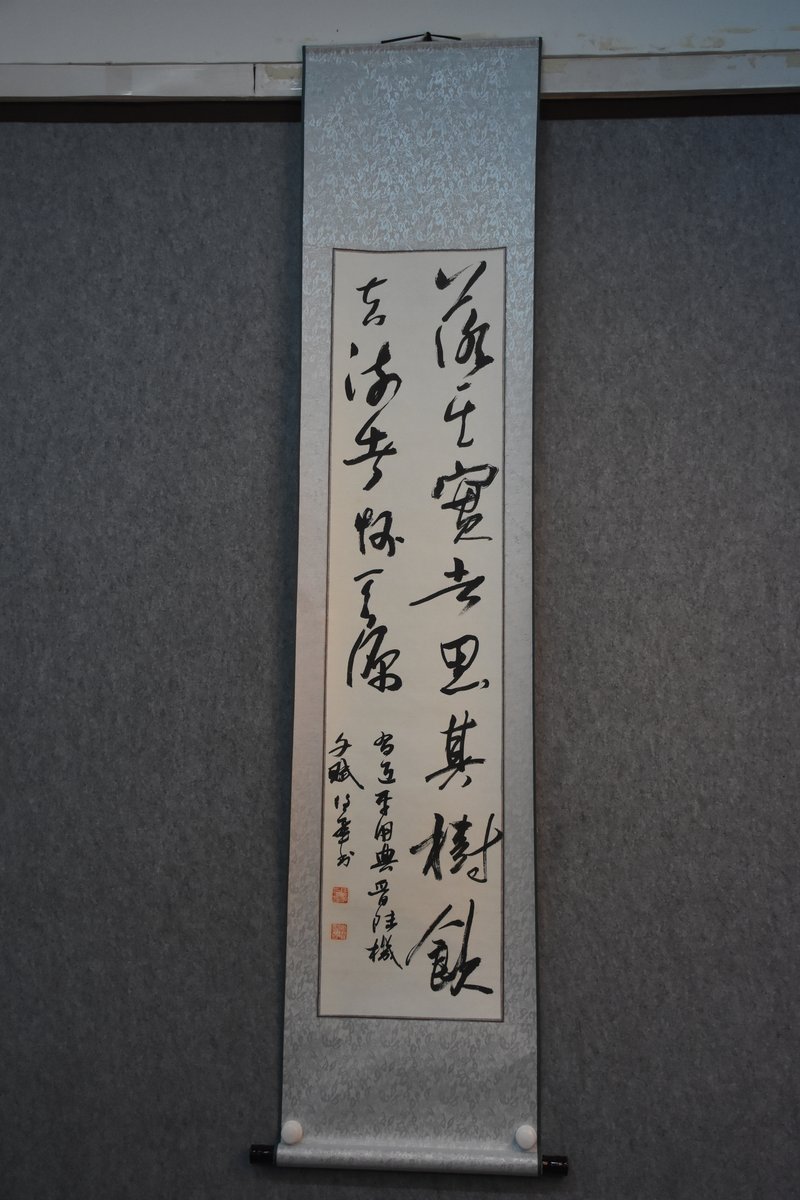 落其實者思其樹飲
其流者懷其源
習近平用典晉陸機
文賦